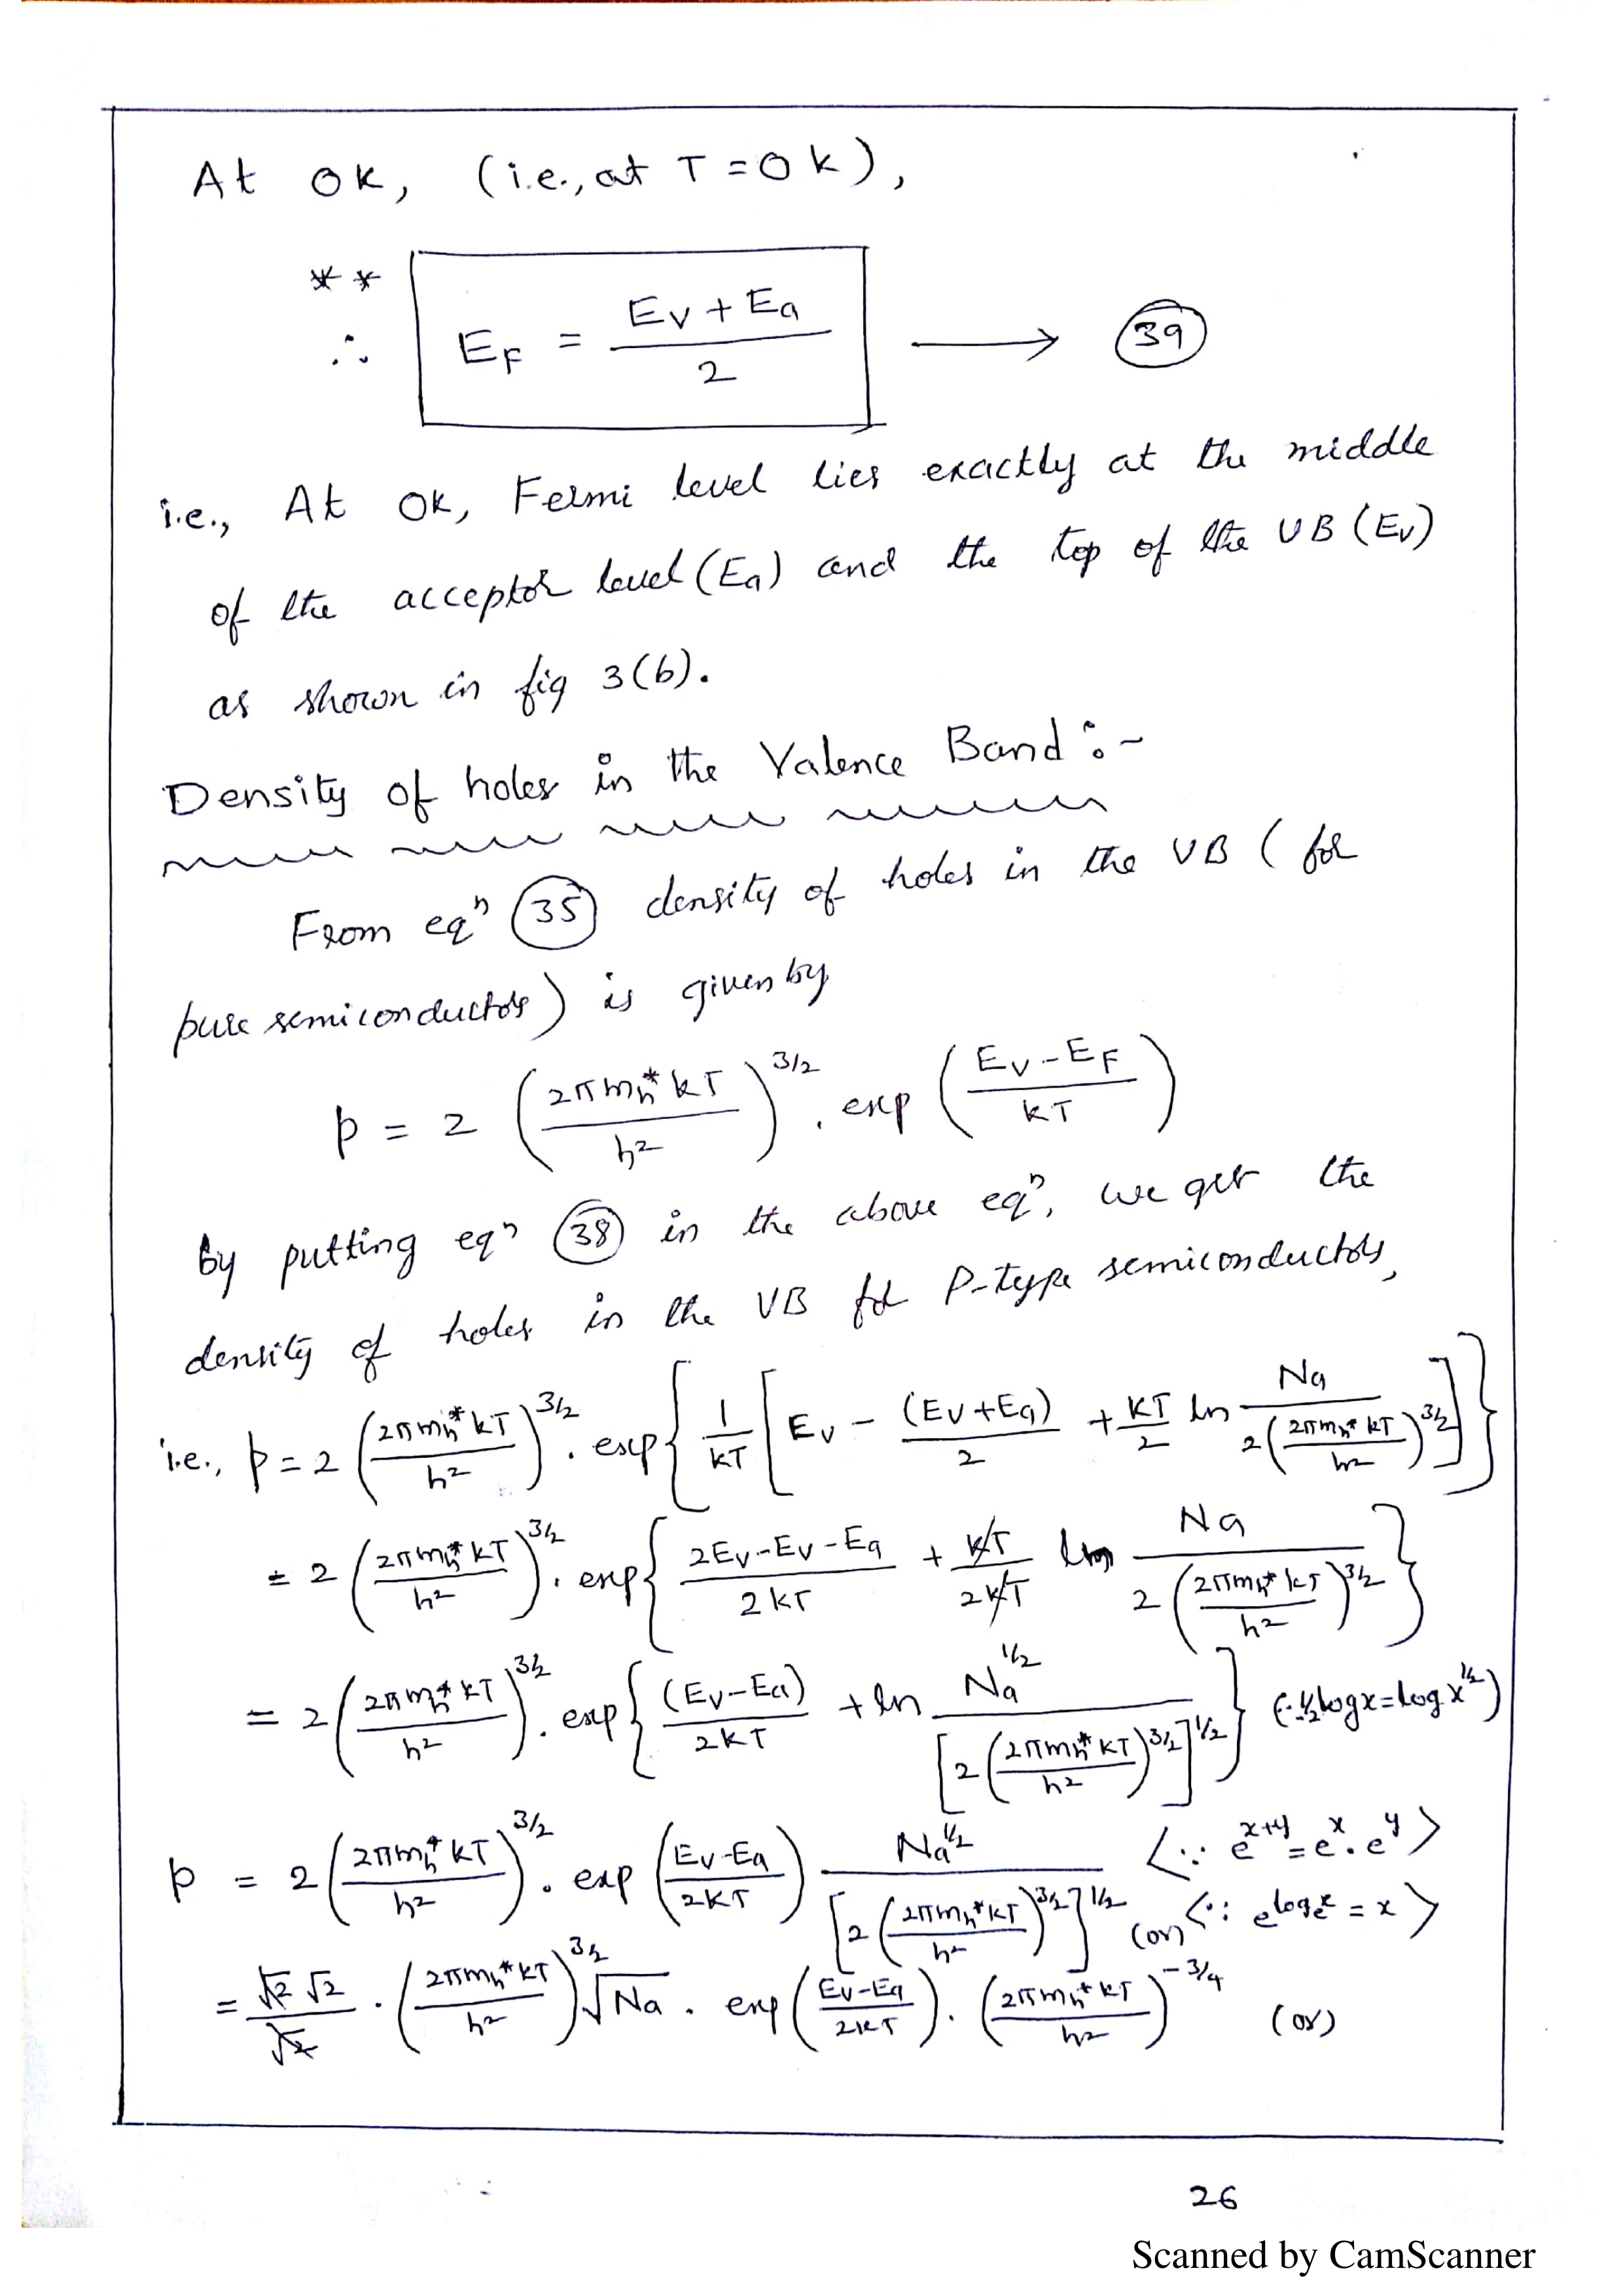 At 0K, (i.e., at T = 0K),
** ∴ E_F = (E_V + E_a)/2 ⟶ (39)
i.e., At 0K, Fermi level lies exactly at the middle
of the acceptor level (Ea) and the top of the VB (Ev)
as shown in fig 3(b).
Density of holes in the Valence Band :-
From eqⁿ (35) density of holes in the VB (for
pure semiconductors) is given by
p = 2 (2πm_h* kT / h²)^{3/2} . exp ((E_V - E_F)/kT)
By putting eqⁿ (38) in the above eqⁿ, we get the
density of holes in the VB for P-type semiconductors,
i.e., p = 2 (2πm_h* kT / h²)^{3/2} . exp { 1/kT [ E_V - (E_V + E_a)/2 + kT/2 ln Na / 2(2πm_h* kT / h²)^{3/2} ] }
= 2 (2πm_h* kT / h²)^{3/2} . exp { (2E_V - E_V - E_a)/2kT + kT/2kT ln Na / 2(2πm_h* kT / h²)^{3/2} }
= 2 (2πm_h* kT / h²)^{3/2} . exp { (E_V - E_a)/2kT + ln Na^{1/2} / [2(2πm_h* kT / h²)^{3/2}]^{1/2} } (∵ ½ log x = log x^{1/2})
p = 2 (2πm_h* kT / h²)^{3/2} . exp ((E_V - E_a)/2kT) Na^{1/2} / [2(2πm_h* kT / h²)^{3/2}]^{1/2} <∵ e^{x+y} = e^x . e^y>
(or) <∵ e^{log_e x} = x>
= √2 √2 / √2 . (2πm_h* kT / h²)^{3/2} √Na . exp ((E_V - E_a)/2kT) . (2πm_h* kT / h²)^{-3/4} (or)
26
Scanned by CamScanner